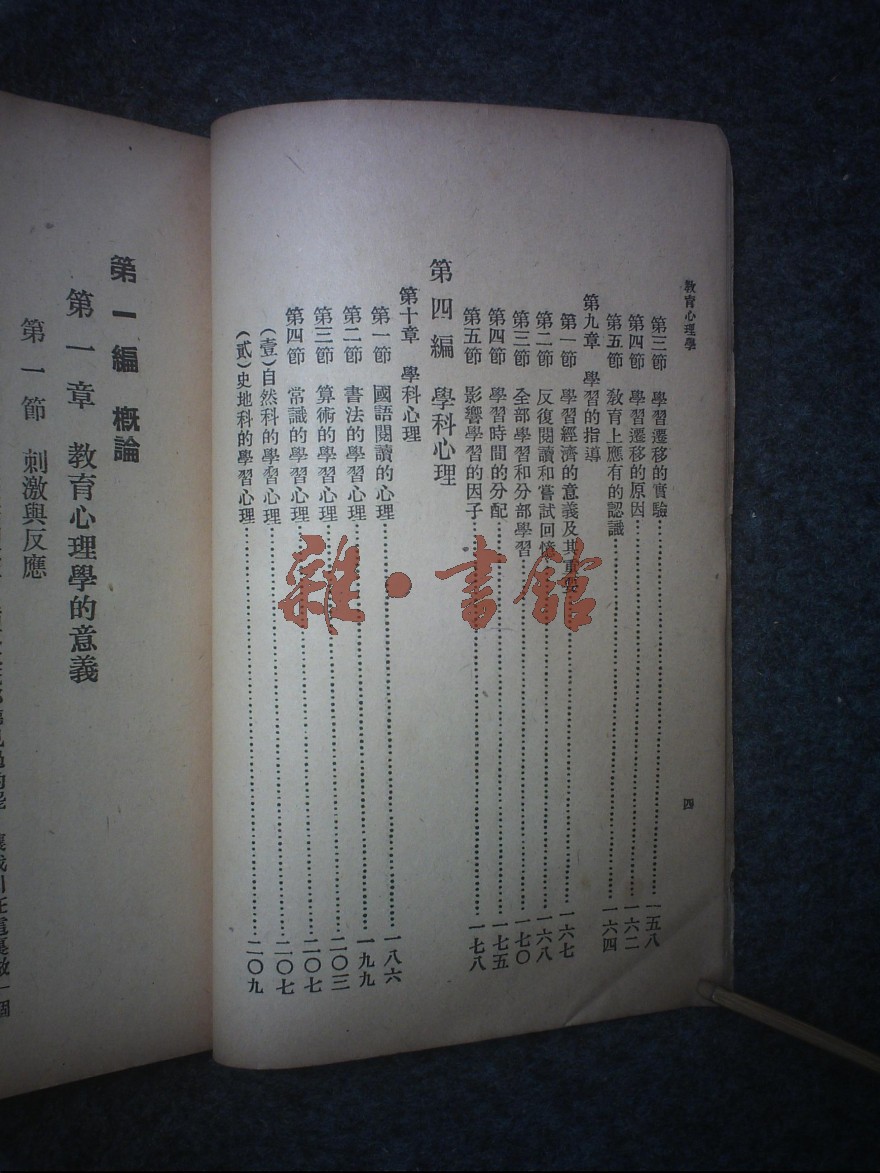 教育心理學
四
第三節 學習遷移的實驗……一五八
第四節 學習遷移的原因……一六二
第五節 敎育上應有的認識……一六四
第九章 學習的指導
第一節 學習經濟的意義及其重要……一六七
第二節 反復閱讀和嘗試回憶……一六八
第三節 全部學習和分部學習……一七〇
第四節 學習時間的分配……一七五
第五節 影響學習的因子……一七八
第四編 學科心理
第十章 學科心理
第一節 國語閱讀的心理……一八六
第二節 書法的學習心理……一九九
第三節 算術的學習心理……二〇三
第四節 常識的學習心理……二〇七
(壹)自然科的學習心理……二〇七
(貳)史地科的學習心理……二〇九
雜·書館
第一編 概論
第一章 教育心理學的意義
第一節 刺激與反應